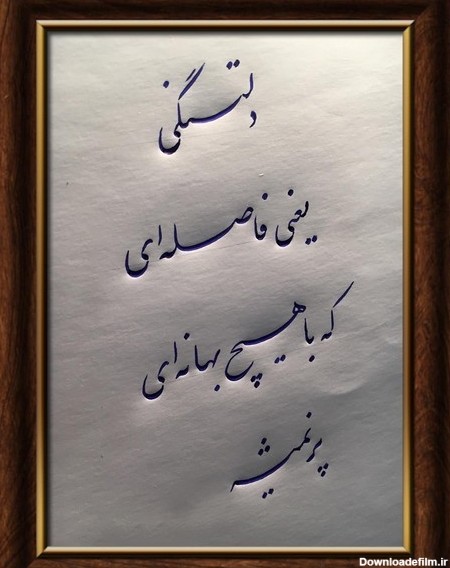 دلتنگی
یعنی فاصله‌ای
که با هیچ بهانه‌ای
پر نمیشه
Downloadefilm.ir